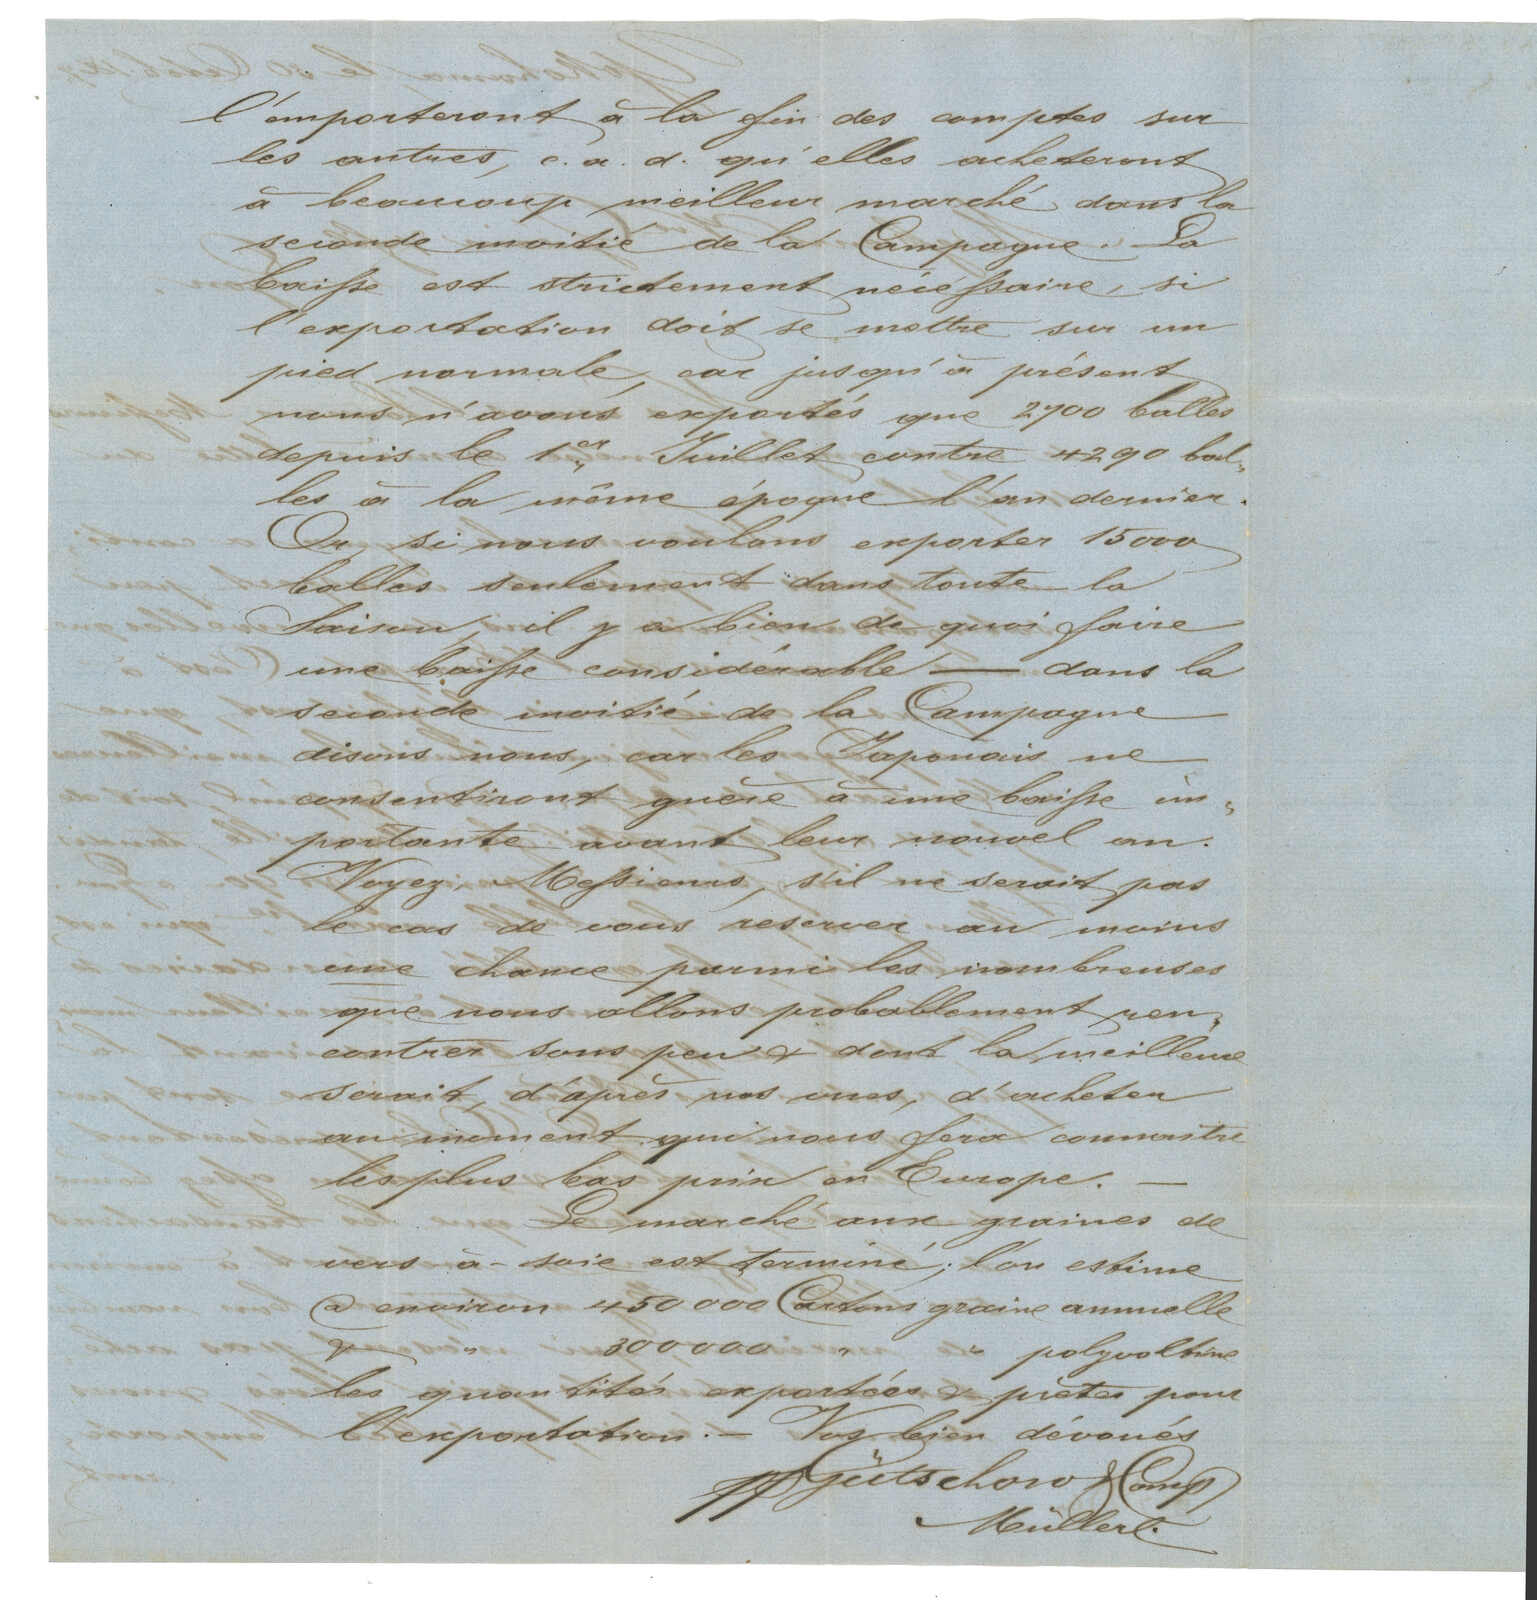 l'emporteront à la fin des comptes sur
les autres, c. a. d. qu'elles acheteront
à beaucoup meilleur marché dans la
seconde moitié de la Campagne. La
baisse est strictement nécéssaire, si
l'exportation doit se mettre sur un
pied normale, car jusqu'à présent
nous n'avons exportés que 2700 balles
depuis le 1er Juillet contre 4290 bal„
les à la même époque l'an dernier.
Or, si nous voulons exporter 15000
balles seulement dans toute la
Saison, il y a bien de quoi faire
une baisse considérable — dans la
seconde moitié de la Campagne
disons nous, car les Japonais ne
consentiront guère à une baisse im„
portante avant leur nouvel an.
Voyez, Messieurs, s'il ne serait pas
le cas de vous reserver au moins
une chance parmi les nombreuses
que nous allons probablement ren„
contrer sous peu & dont la meilleure
serait, d'après nos vues, d'acheter
au moment qui nous fera connaitre
les plus bas prix en Europe. —
Le marché aux graines de
vers à-soie est terminé; l'on estime
@ environ 450000 Cartons graine annuelle
& " 300000 " " polyvoltine
les quantités exportées & prètes pour
l'exportation. — Vos bien dévoués
pp Gütschow & Comp
Müllert.